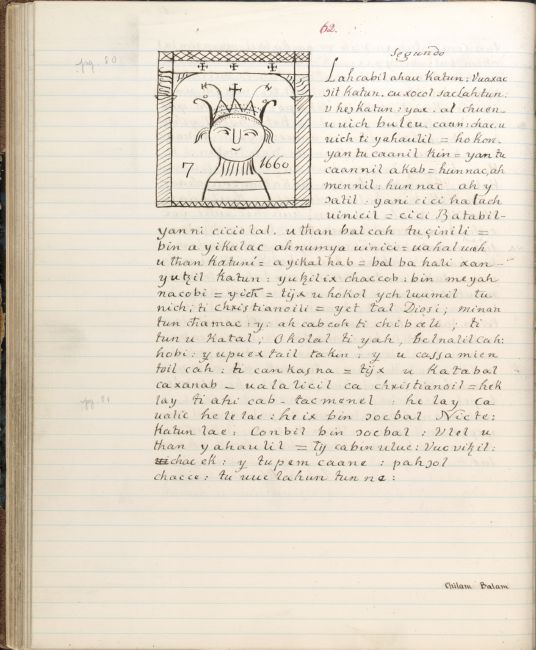 62.
pg. 80
Segundo
7 1660
Lahcabil ahau Katun: Vuaxac
ɔit Katun, cu xocol Saclahtun:
v heɔ Katun: yax: al chuen
u uich buleu caan: chac u
uich ti yahaulil = hokon
yan tu caanil Kin = yan tu
caannil akab = hunnac, ah
mennil: hunnac ah y
ɔalil: yani cici halach
uinicil = cici Batabil-
yanni ciciolal. u than balcah
bin a yikalac ahnumya uinici =
u than katuni = ayikal hab = bal ba hali xan
yutzil Katun: yutzil ix chaccob: bin meyah
nacobi = = tijx u hokol ych luumil tu
nich; ti christianoili = yet tal Diosi; minan
tun chamac: y: ah cab coh ti chibali; ti
tun u Katal; Oholal ti yah,
hobi: y upuextail takin: y u cassamien
toil cah: ti can kasna = tijx u Katabal
caxanab - ualalicil ca christianoil = hek
lay ti ahi cab - tacmenel: he lay ca
ualic helelae: heix bin xocbal Nicte:
Katun lae: Conbil bin xocbal: Vlel u
than yahaulil = Tij cabin uluc: Vuc
chac ek: y tupem caane: pahɔol
chacce: tu uuc lahun tun ne:
pg. 81
Chilam Balam